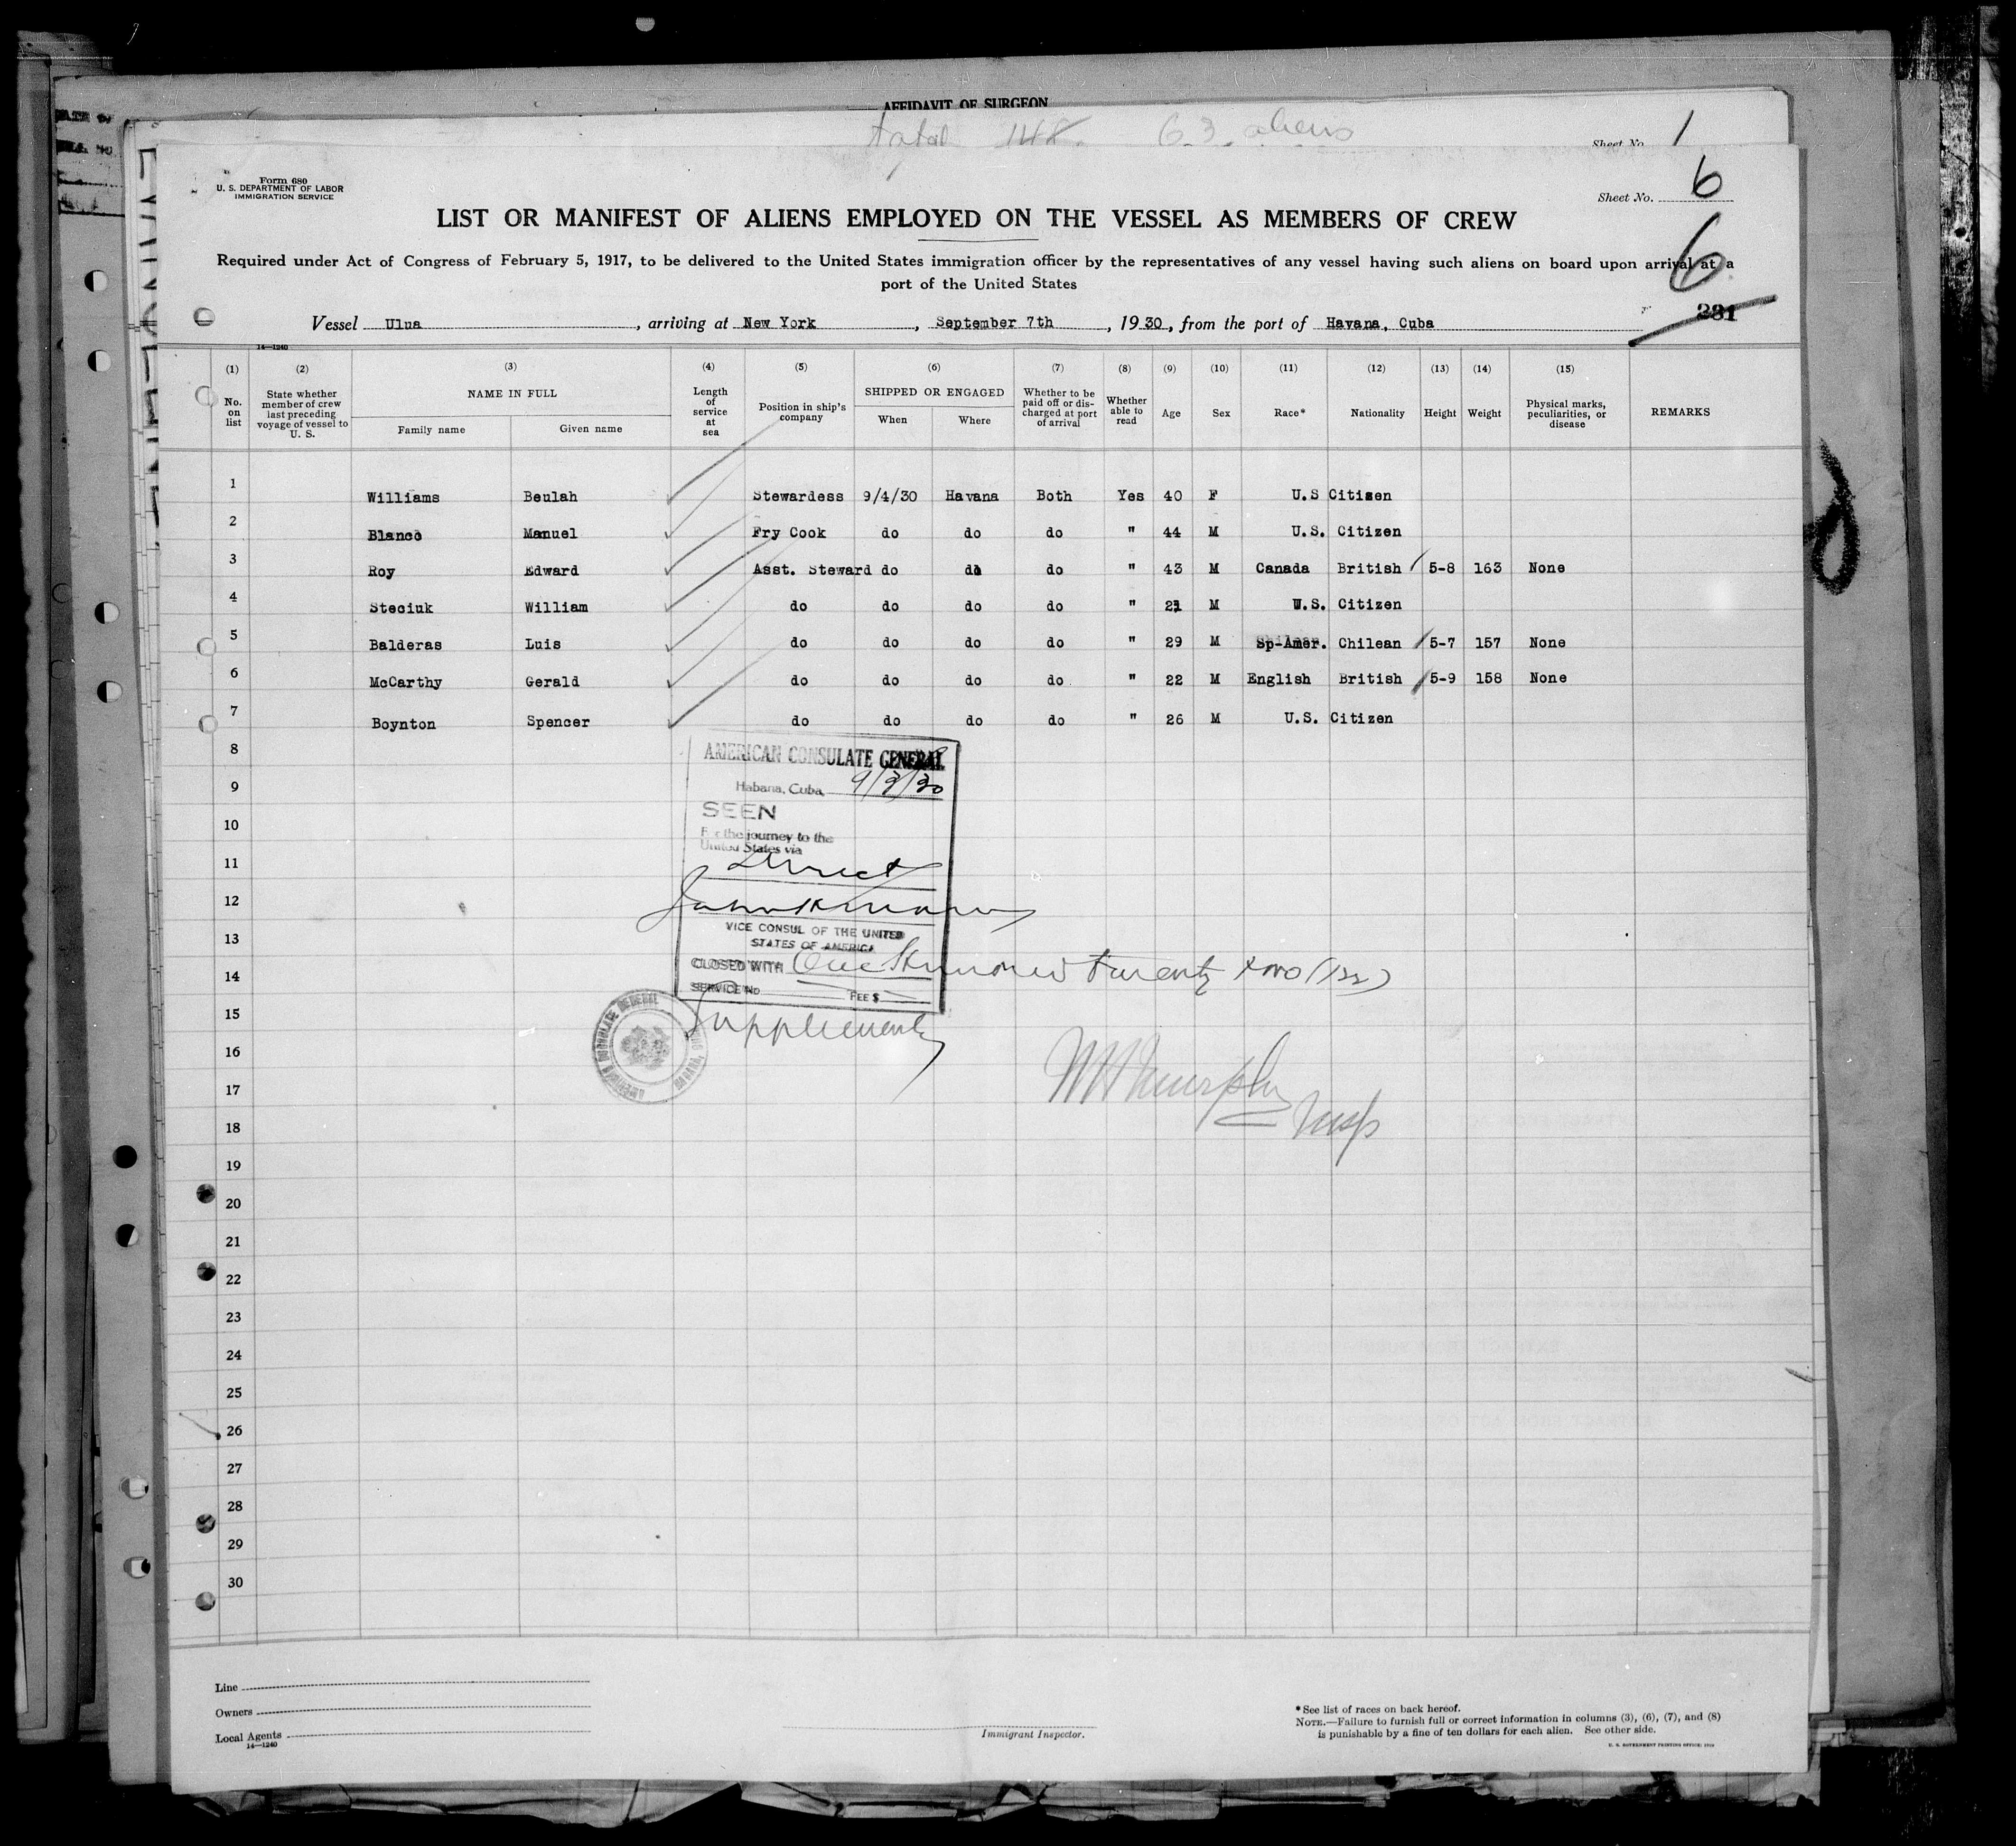 AFFIDAVIT OF SURGEON
total 148. 63 aliens
Sheet No. 1
Form 680
U. S. DEPARTMENT OF LABOR
IMMIGRATION SERVICE
Sheet No. 6
6
LIST OR MANIFEST OF ALIENS EMPLOYED ON THE VESSEL AS MEMBERS OF CREW
Required under Act of Congress of February 5, 1917, to be delivered to the United States immigration officer by the representatives of any vessel having such aliens on board upon arrival at a
port of the United States
Vessel Ulua, arriving at New York, September 7th, 1930, from the port of Havana, Cuba
231
14—1240
(1) (2) (3) (4) (5) (6) (7) (8) (9) (10) (11) (12) (13) (14) (15)
No. on list
State whether member of crew last preceding voyage of vessel to U. S.
NAME IN FULL
Family name
Given name
Length of service at sea
Position in ship's company
SHIPPED OR ENGAGED
When
Where
Whether to be paid off or discharged at port of arrival
Whether able to read
Age
Sex
Race*
Nationality
Height
Weight
Physical marks, peculiarities, or disease
REMARKS
1 Williams Beulah Stewardess 9/4/30 Havana Both Yes 40 F U.S Citizen
2 Blanco Manuel Fry Cook do do do " 44 M U.S. Citizen
3 Roy Edward Asst. Steward do do do " 43 M Canada British 5-8 163 None
4 Steciuk William do do do do " 21 M U.S. Citizen
5 Balderas Luis do do do do " 29 M Sp-Amer. Chilean 5-7 157 None
6 McCarthy Gerald do do do do " 22 M English British 5-9 158 None
7 Boynton Spencer do do do do " 26 M U.S. Citizen
8
9
10
11
12
13
14
15
16
17
18
19
20
21
22
23
24
25
26
27
28
29
30
AMERICAN CONSULATE GENERAL
Habana, Cuba, 9/3/30
SEEN
For the journey to the
United States via
Direct
VICE CONSUL OF THE UNITED
STATES OF AMERICA
CLOSED WITH One Hundred twenty two (122)
SERVICE No FEE $
Supplement
AMERICAN CONSULATE GENERAL
W H Murphy
Insp
Line
Owners
Local Agents
14—1240
Immigrant Inspector.
* See list of races on back hereof.
NOTE.—Failure to furnish full or correct information in columns (3), (6), (7), and (8)
is punishable by a fine of ten dollars for each alien. See other side.